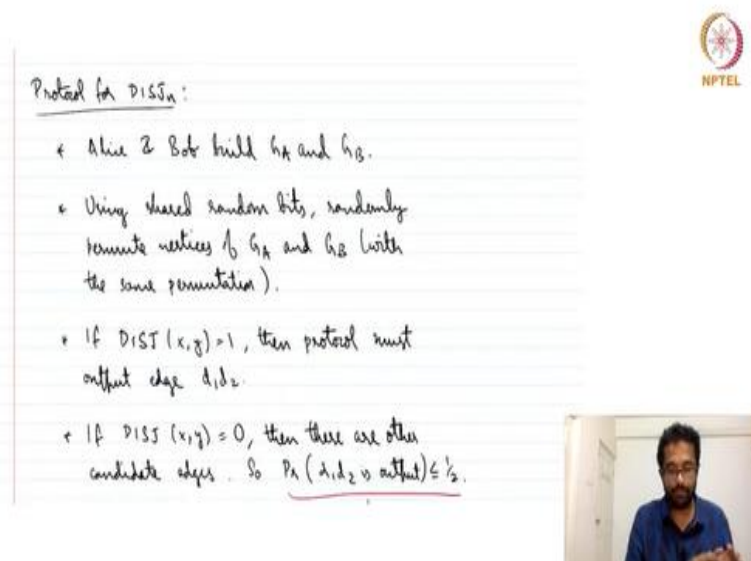 NPTEL
Protocol for DISJn:
* Alice & Bob build GA and GB.
* Using shared random bits, randomly
permute vertices of GA and GB (with
the same permutation).
* If DISJ (x,y)=1, then protocol must
output edge d1d2.
* If DISJ (x,y) = 0, then there are other
candidate edges. So Pr (d1d2 is output) ≤ 1/2.